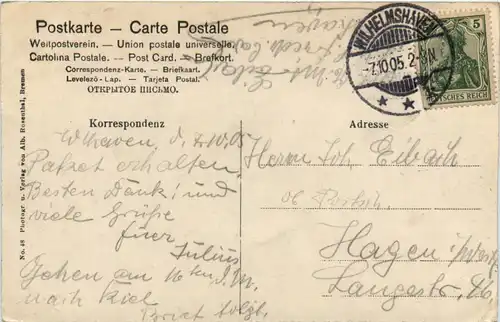 Postkarte — Carte Postale
Weltpostverein. — Union postale universelle.
Cartolina Postale. — Post Card. — Brefkort.
Correspondenz-Karte. — Briefkaart.
Levelezö-Lap. — Tarjeta Postal.
ОТКРЫТОЕ ПИСЬМО.
WILHELMSHAVEN
-7.10.05. 2-3N
5
DEUTSCHES REICH
Korrespondenz
Adresse
W'haven, d. 7.10.05
Paket erhalten.
Besten Dank! und
viele Grüße
Euer
Julius
Gehen am 16ten d. M.
nach Kiel
Brief folgt.
Herrn Joh. Eibach
Hagen i/Westf.
Langestr.
No. 48 Photogr. u. Verlag von Alb. Rosenthal, Bremen